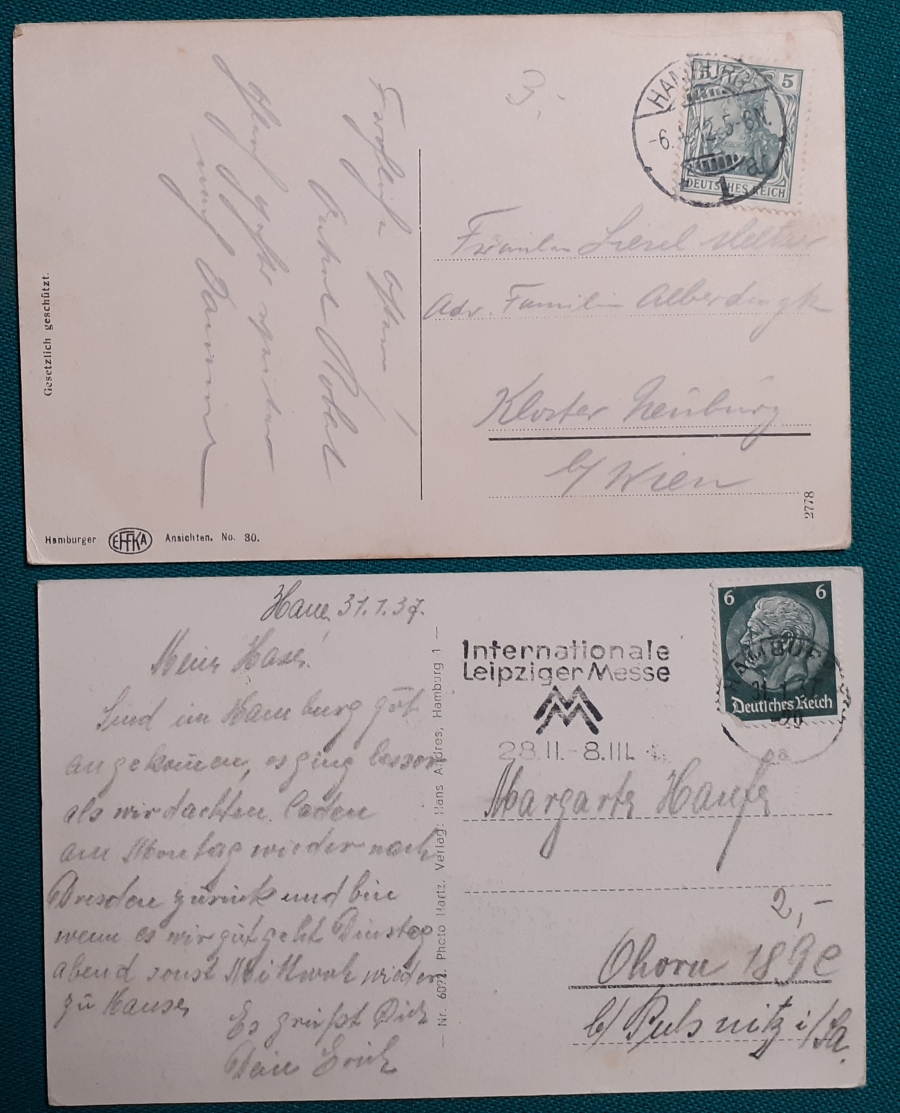 HAMBURG
-6.4.12.5-6N.
1
5
DEUTSCHES REICH
Fröhliche Ostern!
Robert
Fräulein Liesel
Adr. Familie Alberdingk
Kloster Neuburg
b/ Wien
Gesetzlich geschützt.
Hamburger EFFKA Ansichten. No. 30.
2778
31.1.37.
Mein Hase!
Sind in Hamburg gut
angekommen, es ging besser
als wir dachten. laden
am Montag wieder nach
Dresden zurück und bin
wenn es mir gut geht Dinstag
abend sonst Mittwoch wieder
zu Hause
Es grüßt Dich
Dein Erich
Nr. 6022. Photo Hartz. Verlag: Hans Andres, Hamburg 1
Internationale
Leipziger Messe
28.II.-8.III.
6 6
Deutsches Reich
HAMBURG
31.1.
Margarte Haufe
2,-
Ohorn 189e
b/ Pulsnitz i/Sa.